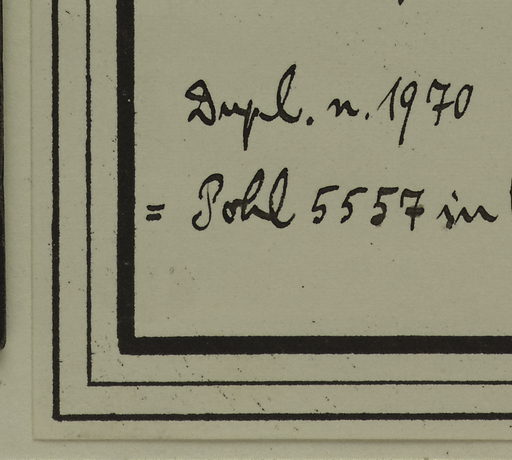 Dupl. n. 1970
= Pohl 5557 in